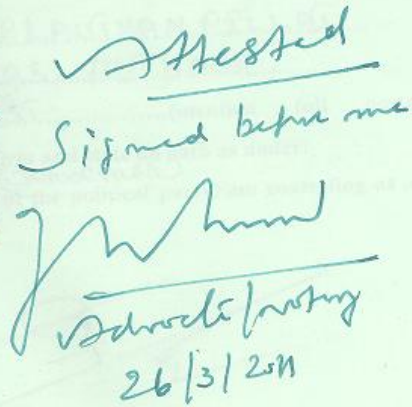 Attested
Signed before me
Advocate/notary
26/3/2011